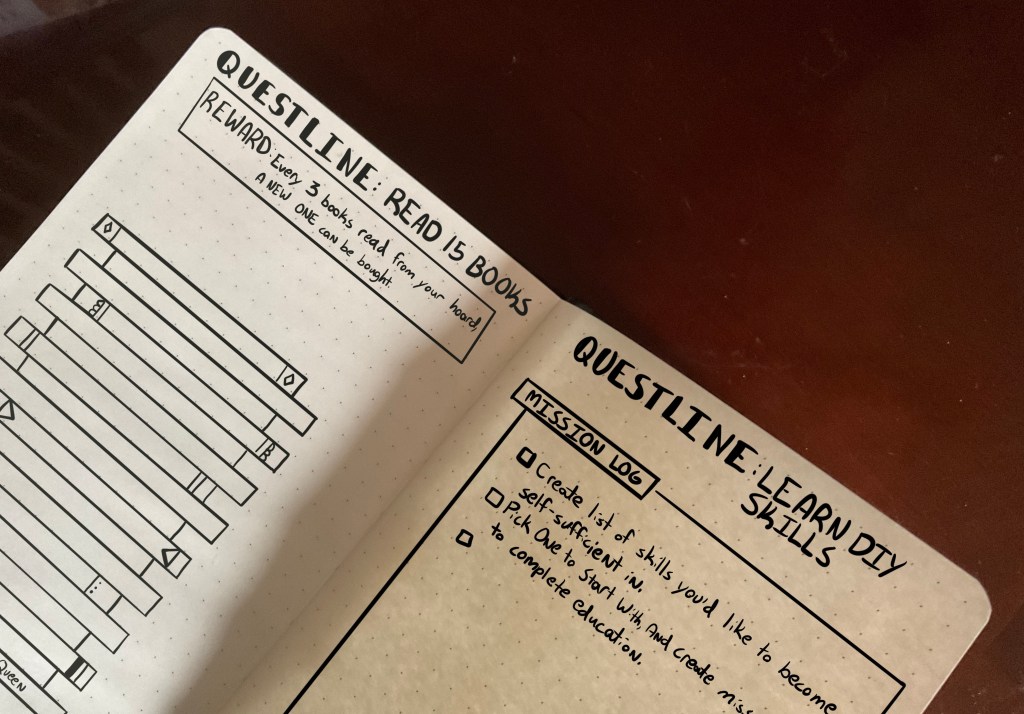 QUESTLINE: READ 15 BOOKS
REWARD: Every 3 books read from your hoard,
A NEW ONE can be bought.
Queen
QUESTLINE: LEARN DIY
SKILLS
MISSION LOG
Create list of skills you'd like to become
self-sufficient in.
Pick One to Start With, And create
to complete Education.